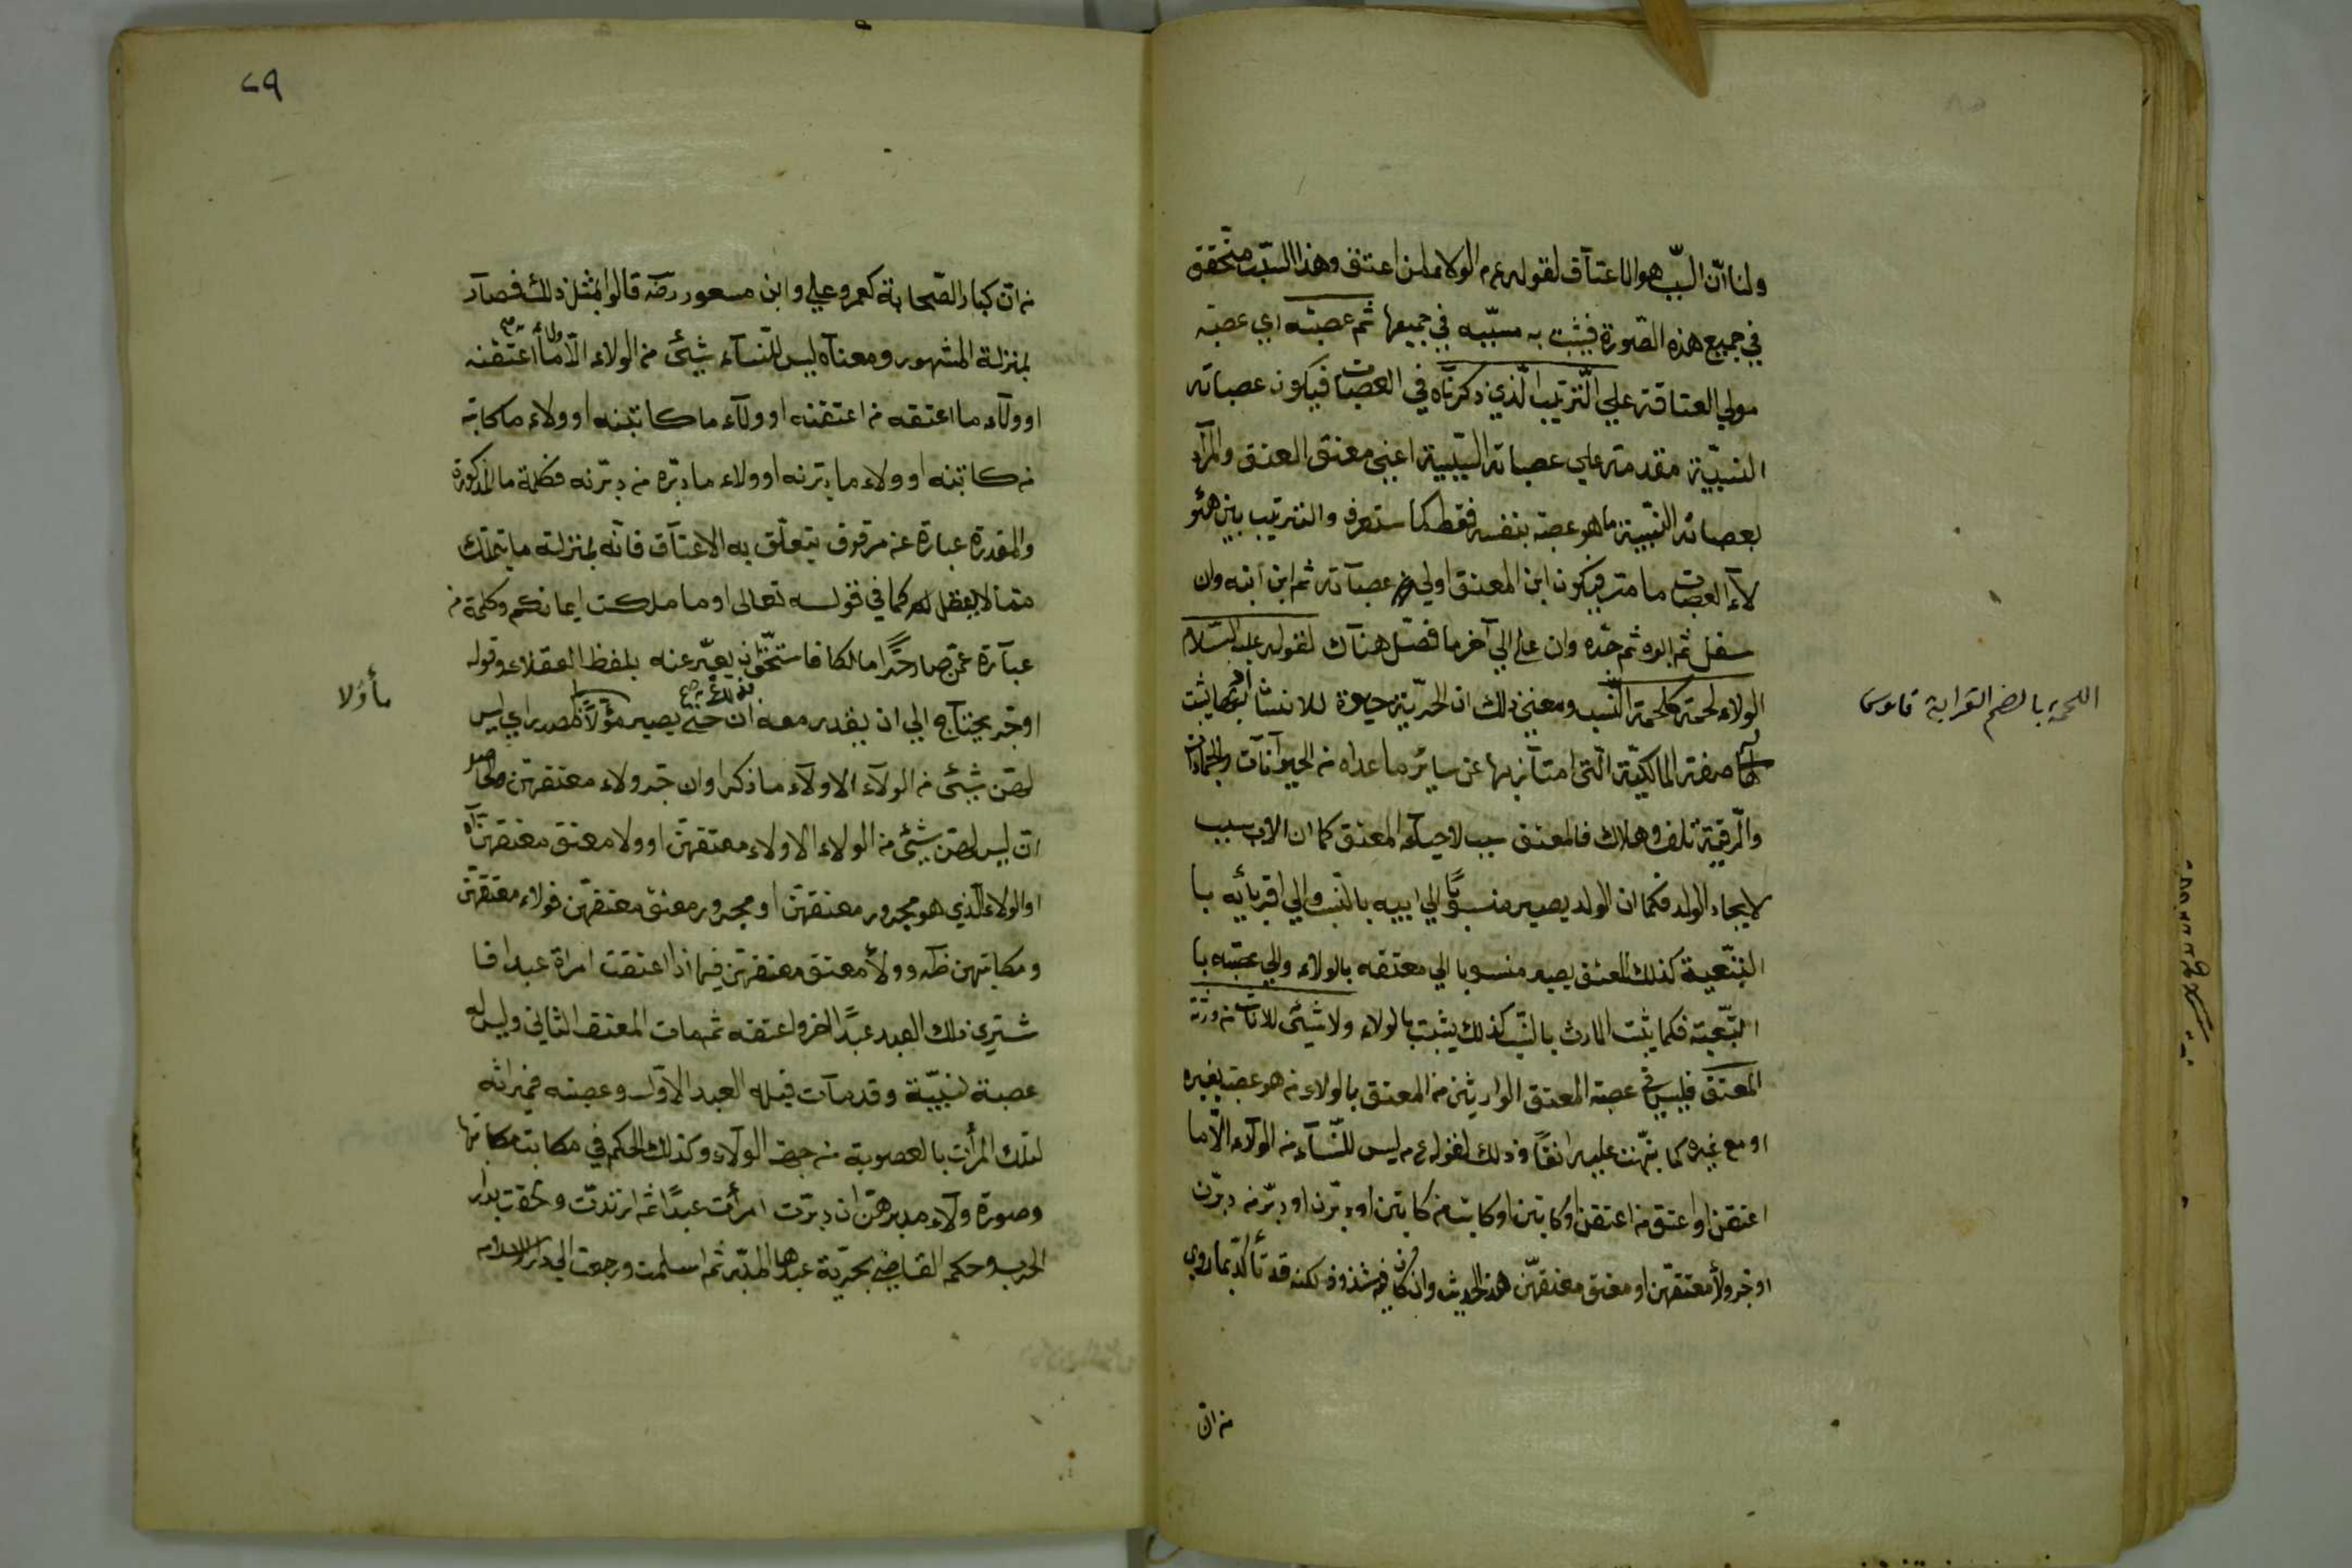 ولنا ان السبب هو الاعتاق لقوله عم الولاء لمن اعتق وهذا السبب متحقق
في جميع هذه الصورة فيثبت به مسببه في جميعها ثم عصبته اي عصبة
مولي العتاقة علي الترتيب الذي ذكرناه في العصبات فيكون عصباته
النسبية مقدمة علي عصباته السببية اعني معتق المعتق والمراد
بعصباته النسبية ما هو عصبة بنفسه فقط كما ستعرف والترتيب بين هئو
لاء العصبات ما مر فيكون ابن المعتق اولي عصباته ثم ابن ابنه وان
سفل ثم ابوه ثم جده وان علي الي آخر ما فصل هناك لقوله عليه السلام
الولاء لحمة كلحمة النسب ومعني ذلك ان الحرية حيوة للانسان اذ بها يثبت
له صفة المالكية التي امتاز بها عن سائر ما عداه من الحيوانات والجمادات
والرقية تلف وهلاك فالمعتق سبب لاحياء المعتق كما ان الاب سبب
لايجاد الولد فكما ان الولد يصير منسوبا الي ابيه بالنسب والي اقربائه با
لتبعية كذلك المعتق يصير منسوبا الي معتقه بالولاء والي عصبته با
لتبعية فكما يثبت الارث بالنسب كذلك يثبت بالولاء ولا شيئ للاناث من ورثة
المعتق فليس في عصبة المعتق الوارثين من المعتق بالولاء من هو عصبة بغيره
او مع غيره كما نبهت عليه انفا وذلك لقوله عم ليس للنساء من الولاء الا ما
اعتقن او اعتق من اعتقن او كاتبن او كاتب من كاتبن او دبرن او دبر من دبرن
او جر ولاء معتقهن او معتق معتقهن هذا الحديث وان كان فيه شذوذ لكنه قد تأكد بما روي
من ان
اللحمة بالضم القرابة قاموس
٢٩
من ان كبار الصحابة كعمر وعلي وابن مسعود رضه قالوا بمثل ذلك فصار
بمنزلة المشهور ومعناه ليس للنساء شيئ من الولاء الا ولاء ما اعتقنه
او ولاء ما اعتقه من اعتقنه او ولاء ما كاتبنه او ولاء ما كاتبه
من كاتبنه او ولاء ما دبرنه او ولاء ما دبره من دبرنه فكلمة ما المذكورة
والمقدرة عبارة عن مرقوق يتعلق به الاعتاق فانه بمنزلة ما يتملك
مما لا يعقل كما في قوله تعالى او ما ملكت ايمانكم وكلمة من
عبارة عمن صار حرا مالكا فاستحق ان يعبر عنه بلفظ العقلاء وقوله
او جر يحتاج الي ان يقدر معه ان حتي يصير مؤلا بالمصدر اي ليس
لهن شيئ من الولاء الا ولاء ما ذكر او ان جر ولاء معتقهن
ان ليس لهن شيئ من الولاء الا ولاء معتقهن او ولاء معتق معتقهن
او الولاء الذي هو مجرور معتقهن او مجرور معتق معتقهن فولاء معتقهن
ومكاتبهن ظه وولاء معتق معتقهن فيما اذا اعتقت امراة عبدا فا
شتري ذلك العبد عبدا اخر واعتقه ثم مات المعتق الثاني وليس له
عصبة نسبية وقد مات قبله العبد الاول وعصبته فميراثه
لتلك المرأت بالعصوبة من جهة الولاء وكذلك الحكم في مكاتب مكاتبها
وصورة ولاء مدبرهن ان دبرت امرأت عبدا ثم ارتدت ولحقت بدار
الحرب وحكم القاضي بحرية عبدها المدبر ثم اسلمت ورجعت الي دار الاسلام
مأولا